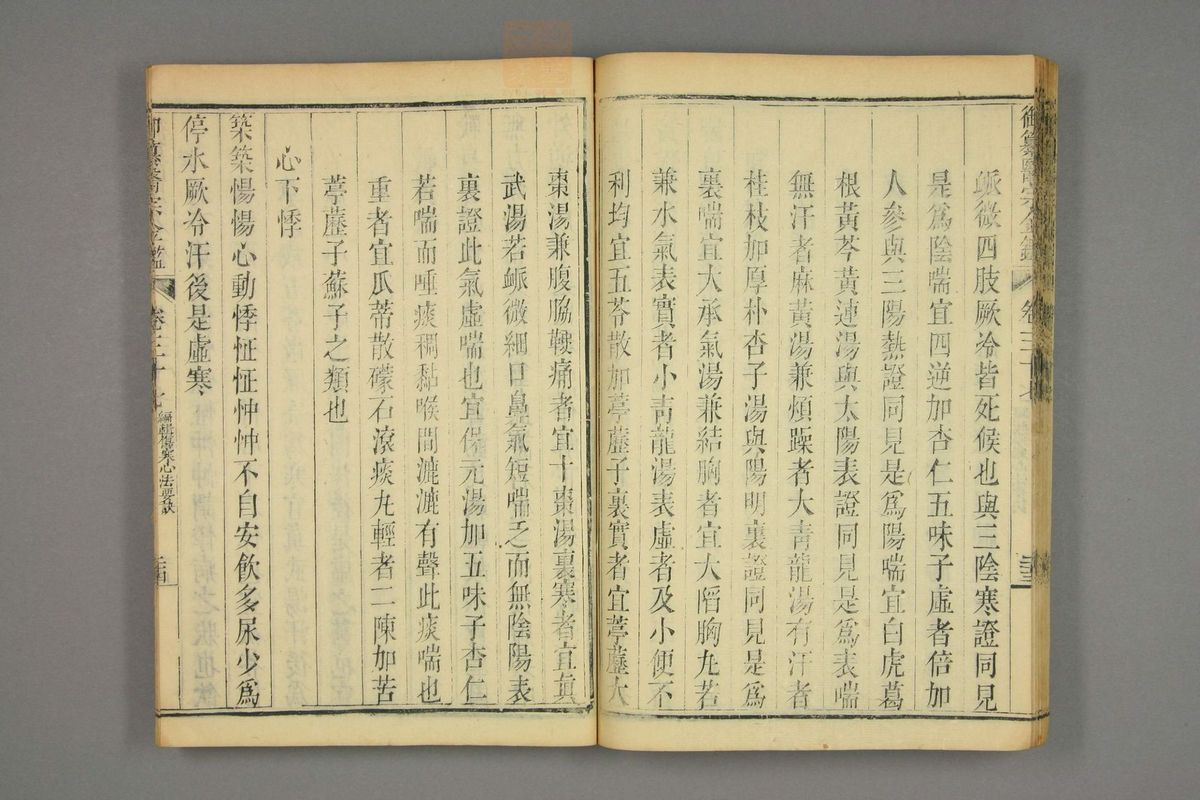 御纂醫宗金鑑 卷三十七
脈微四肢厥冷皆死候也與三陰寒證同見
是爲陰喘宜四逆加杏仁五味子虛者倍加
人參與三陽熱證同見是爲陽喘宜白虎葛
根黃芩黃連湯與太陽表證同見是爲表喘
無汗者麻黃湯兼煩躁者大靑龍湯有汗者
桂枝加厚朴杏子湯與陽明裏證同見是爲
裏喘宜大承氣湯兼結胸者宜大陷胸丸若
兼水氣表實者小靑龍湯表虛者及小便不
利均宜五苓散加葶藶子裏實者宜葶藶大
棗湯兼腹脇鞕痛者宜十棗湯裏寒者宜眞
武湯若脈微細口鼻氣短喘乏而無陰陽表
裏證此氣虛喘也宜保元湯加五味子杏仁
若喘而唾痰稠黏喉間漉漉有聲此痰喘也
重者宜瓜蒂散礞石滾痰丸輕者二陳加苦
葶藶子蘇子之類也
心下悸
築築惕惕心動悸怔怔忡忡不自安飮多尿少爲
停水厥冷汗後是虛寒
御纂醫宗金鑑 卷三十七 編輯傷寒心法要訣